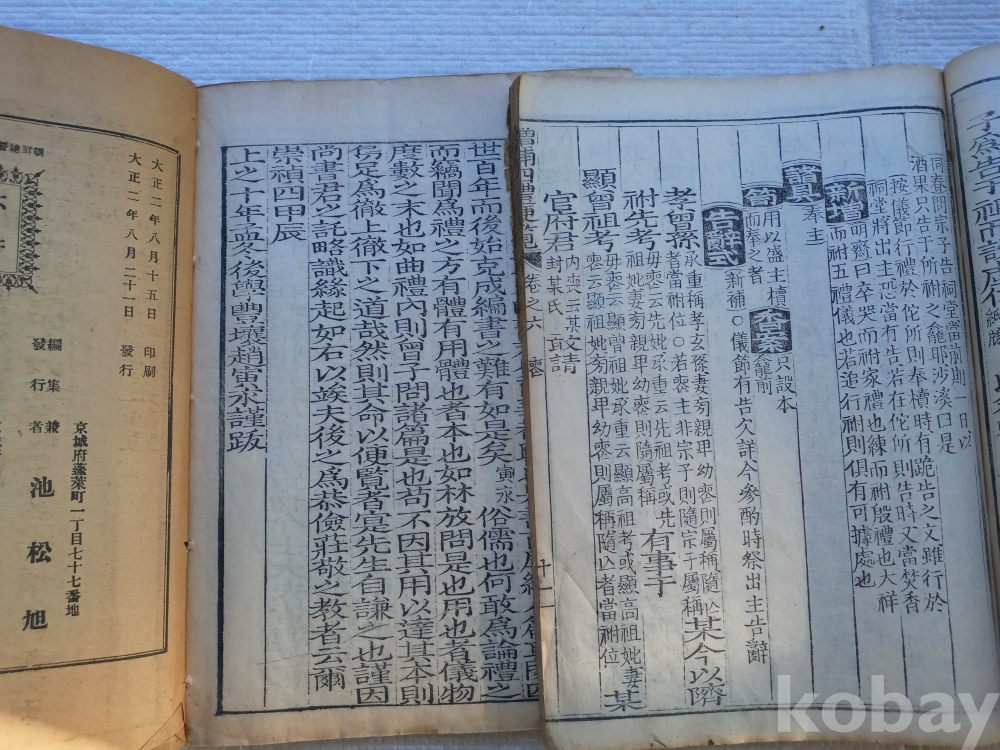 同春問宗子告祠堂當前期一日以
酒果只告于所祔之龕耶沙溪曰是
按儀即行禮於佗所則奉櫝時有跪告之文雖行於
祠堂將出主恐當有告若在佗所則告時又當焚香
新增 明齋曰卒哭而祔家禮也練而祔殷禮也大祥
而祔五禮儀也若追行祔則俱有可據處也
諸具 奉主
笥 用以盛主櫝
而奉之者 香案 只設本
龕前
告辭式 新補○儀節有告欠詳今參酌時祭出主告辭
孝曾孫 承重稱孝玄孫妻旁親卑幼喪則屬稱隨亾
者當祔位○若喪主非宗子則隨宗子屬稱 某今以隮
祔先考 母喪云先妣承重云先祖考或先
祖妣妻喪旁親卑幼喪則隨屬稱 有事于
顯曾祖考 母喪云顯曾祖妣承重云顯高祖考或顯高祖妣妻
喪云顯祖妣旁親卑幼喪則屬稱隨亾者當祔位 某
官府君 內喪云某
封某氏 敢請
增補四禮便覽 卷之六 喪 十一
世百年而後始克成編書之難有如是矣寅永俗儒也何敢爲論禮之
而竊聞爲禮之方有體有用體也者本也如林放問是也用也者儀物
度數之末也如曲禮內則曾子問諸篇是也苟不因其用以達其本則
惡足爲徹上徹下之道哉然則其命以便覽者宣先生自謙之也謹因
尚書君之託略識緣起如右以竢夫後之爲恭儉莊敬之教者云爾
崇禎四甲辰
上之十年孟冬後學豊壤趙寅永謹跋
大正二年八月十五日 印刷
大正二年八月二十一日 發行
京城府蓬萊町一丁目七十七番地
編集兼
發行者 池松旭
kobay